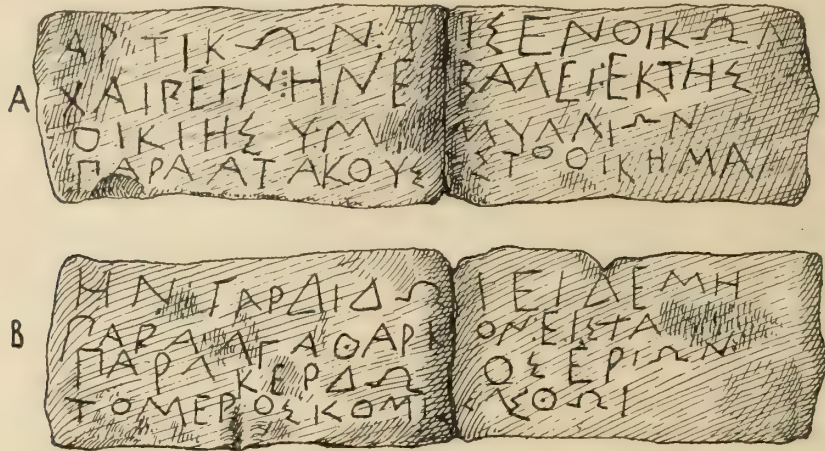 A
ΑΡΤΙΚΩΝ:Τ ΙΣΕΝΟΙΚΩΝ
ΧΑΙΡΕΙΝ:ΗΝΕ ΒΑΛΕΙ:ΕΚΤΗΣ
ΟΙΚΙΗΣ ΥΜ ΜΥΛΛΙΩΝ
ΠΑΡΑΑΤΑΚΟΥΣ ΕΣΤΟΟΙΚΗΜΑ
B
ΗΝ:ΓΑΡΔΙΔΩ ΙΕΙΔΕΜΗ
ΠΑΡΑΑΓΑΘΑΡΚ ΟΝ:ΕΙΣΤΑ
ΠΑΡΑ ΚΕΡΔΩ ΟΣΕΡΙΩΝ:
ΤΟΜΕΡΟΣΚΟΜΙ ΣΑΣΘΩΙ